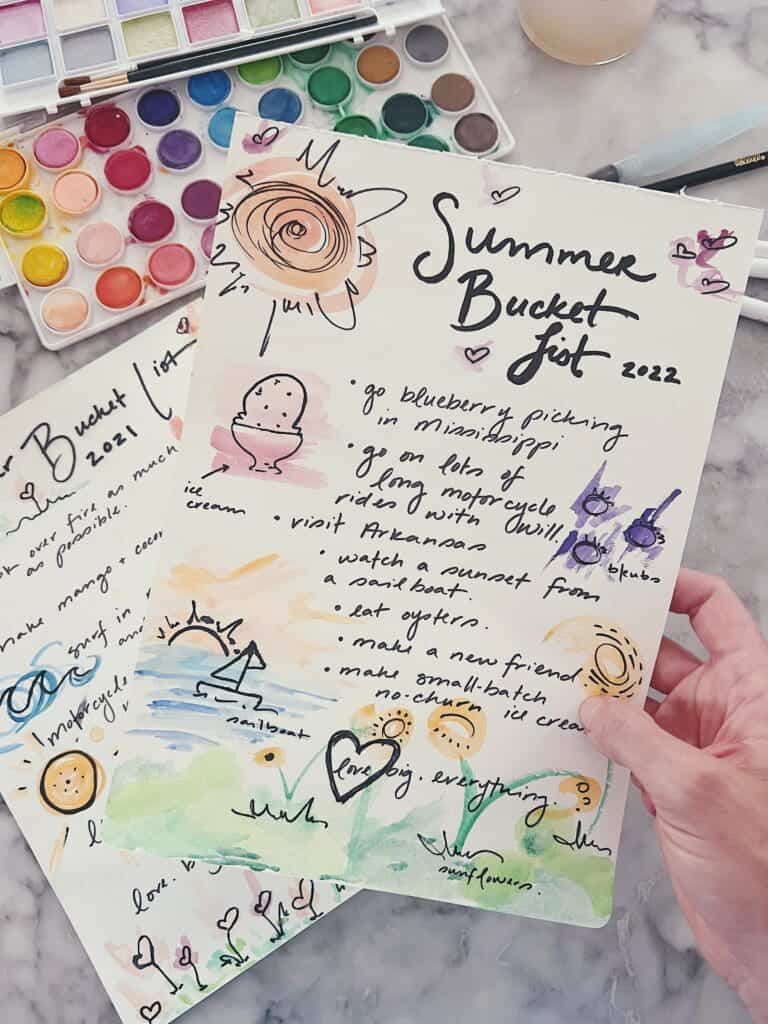 Summer
Bucket
List 2022
• go blueberry picking
in Mississippi
• go on lots of
long motorcycle
rides with Will.
• visit Arkansas
• watch a sunset from
a sailboat.
• eat oysters.
• make a new friend
• make small-batch
no-churn ice crea
love big. everything.
ice
cream
bleubs
sailboat
sunflowers.
Bucket List
2021
over fire as much
as possible.
make mango +
surf in
motorcycle
love.